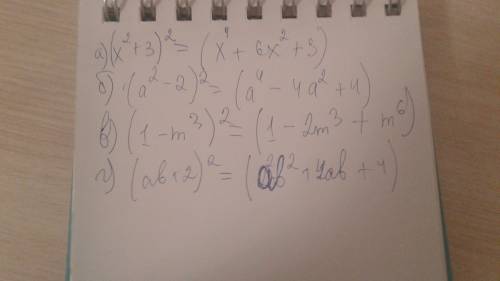 а) (x² + 3)² = (x⁴ + 6x² + 3)
б) (a² - 2)² = (a⁴ - 4a² + 4)
в) (1 - m³)² = (1 - 2m³ + m⁶)
г) (ab + 2)² = (ab² + 4ab + 4)